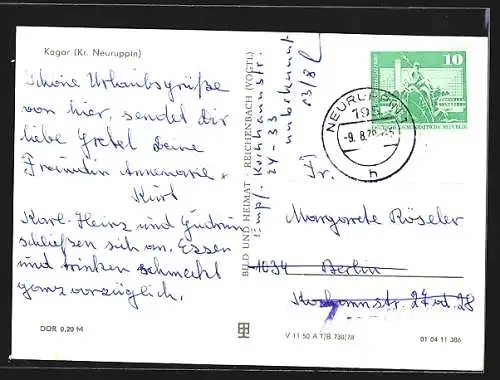 Kagar (Kr. Neuruppin)
Schöne Urlaubsgrüße
von hier, sendet dir
liebe Gretel Deine
Freundin Annemarie +
Kurt
Karl-Heinz und Gudrun
schließen sich an. Essen
und trinken schmeckt
ganz vorzüglich.
DDR 0,20 M
BILD UND HEIMAT · REICHENBACH (VOGTL)
Empf. Kochhannstr.
24-33
unbekannt
13/8
10
NEURUPPIN 1
195
-9. 8.78
h
DEMOKRATISCHE REPUBLIK
Fr.
Margarete Röseler
1034 Berlin
Kochannstr. 27 od. 28
V 11 50 A 1/B 730/78
01 04 11 386